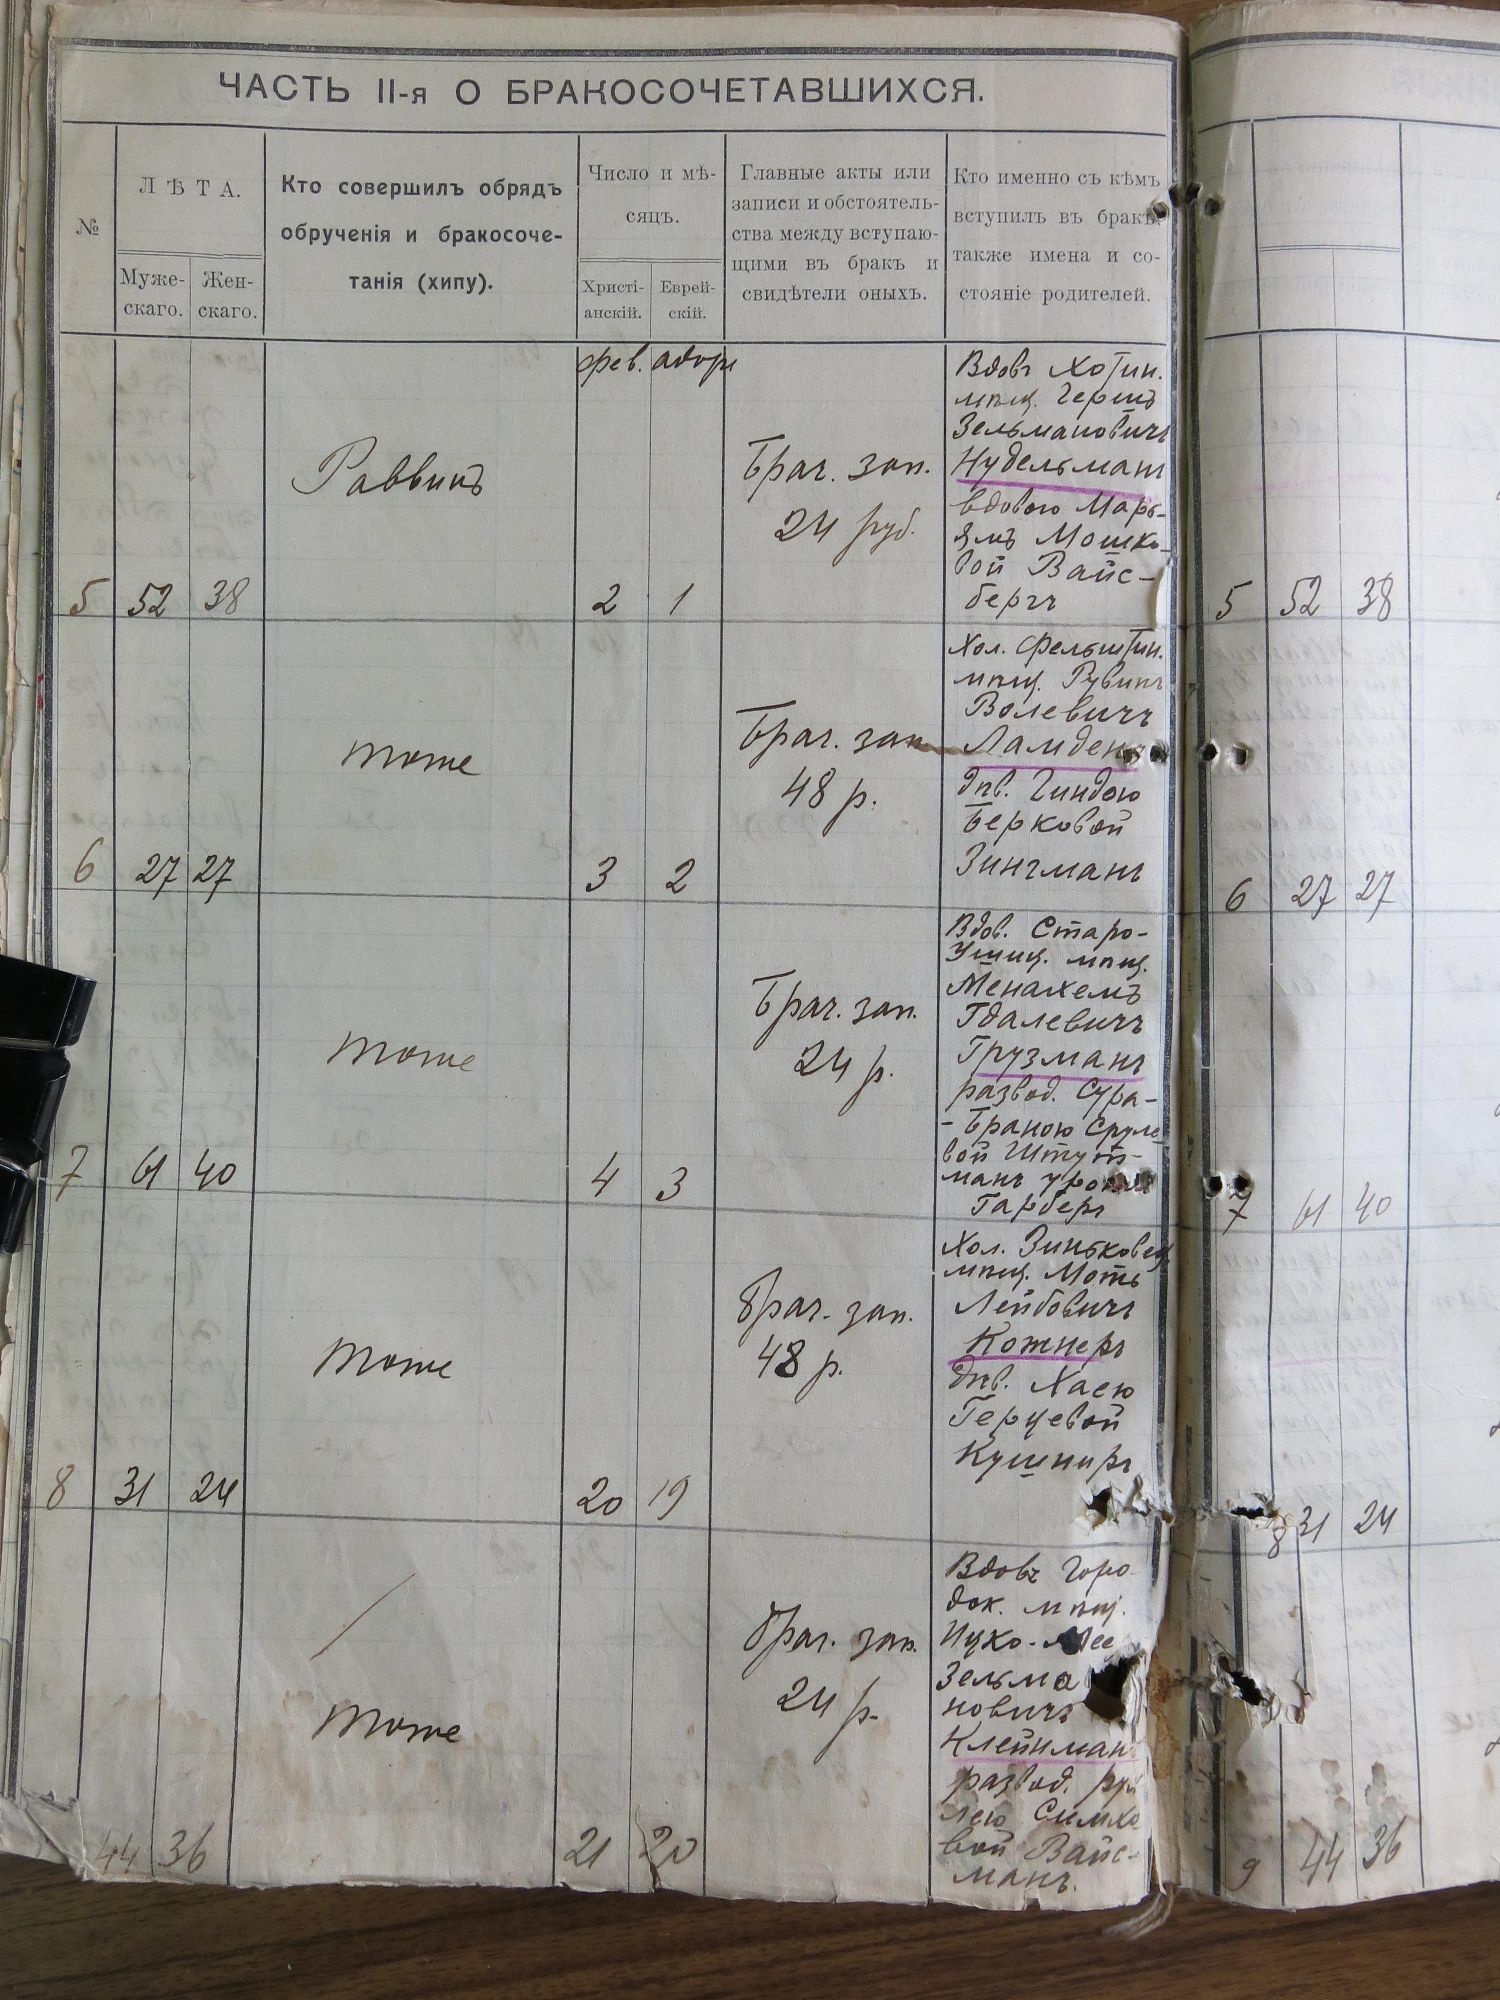 ЧАСТЬ II-я О БРАКОСОЧЕТАВШИХСЯ.
№
ЛѢТА.
Муже-
скаго.
Жен-
скаго.
Кто совершилъ обрядъ
обрученія и бракосоче-
танія (хипу).
Число и мѣ-
сяцъ.
Христі-
анскій.
Еврей-
скій.
Главные акты или
записи и обстоятель-
ства между вступаю-
щими въ бракъ и
свидѣтели оныхъ.
Кто именно съ кѣмъ
вступилъ въ бракъ,
также имена и со-
стояніе родителей.
фев. адоръ
5 52 38
Раввинъ
2 1
Брач. зап.
24 руб.
Вдовъ Хотин.
мпщ. Гершъ
Зельмановичъ
Нудельманъ
вдовою Марь-
ямъ Мошко-
вой Вайс-
бергъ
6 27 27
тоже
3 2
Брач. зап.
48 р.
Хол. Фельштин.
мпщ. Рувинъ
Волевичъ
Ламденъ
дпв. Гиндою
Берковой
Зингманъ
7 61 40
тоже
4 3
Брач. зап.
24 р.
Вдов. Старо-
Ушиц. мпщ.
Менахемъ
Гдалевичъ
Грузманъ
развод. Сура-
-Браною Сруле-
вой Штут-
манъ урожд.
Гарберъ
8 31 24
тоже
20 19
Брач. зап.
48 р.
Хол. Зиньковец.
мпщ. Моть
Лейбовичъ
Кожнеръ
дпв. Хаею
Герцевой
Кушниръ
44 36
тоже
21 20
Брач. зап.
24 р.
Вдовъ Горо-
док. мпщ.
Ицхо-Мее
Зельма
новичъ
Клейнманъ
развод.
лею Симхо
вой Вайс-
манъ.
5 52 38
6 27 27
7 61 40
8 31 24
9 44 36